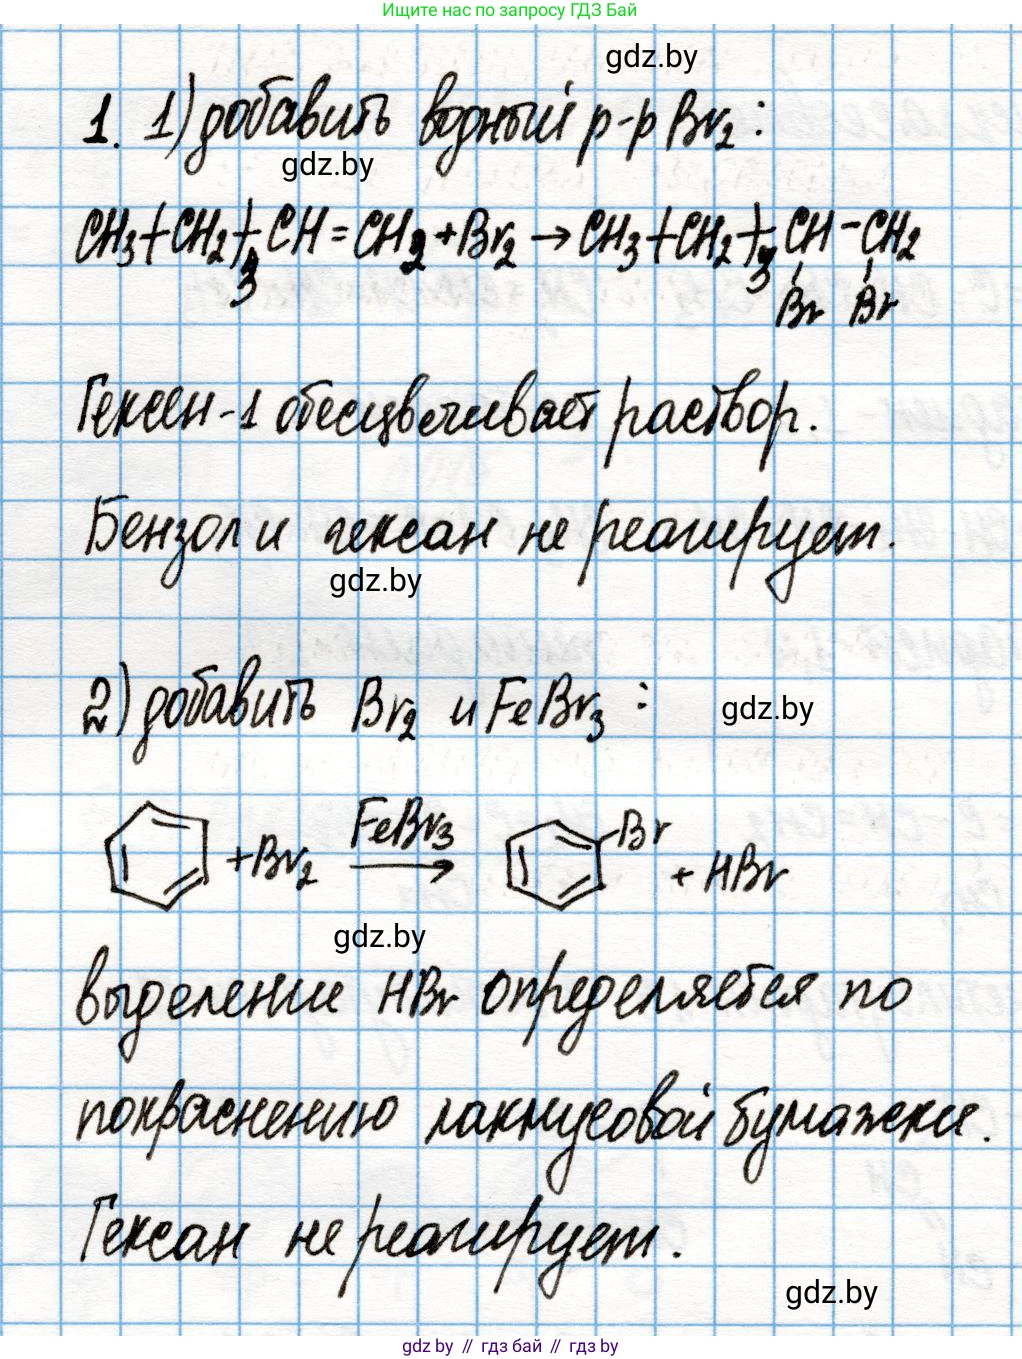 Ищите нас по запросу ГДЗ Бай
gdz.by
1. 1) добавить водный р-р Br₂:
gdz.by
CH₃-(CH₂)₃-CH=CH₂+Br₂→CH₃-(CH₂)₃-CH-CH₂
Br Br
Гексен-1 обесцвечивает раствор.
Бензол и гексан не реагирует.
gdz.by
2) добавить Br₂ и FeBr₃:
gdz.by
+Br₂ FeBr₃ → Br + HBr
gdz.by
выделение HBr определяется по
покраснению лакмусовой бумажки.
Гексан не реагирует.
gdz.by
gdz by // гдз бай // гдз by